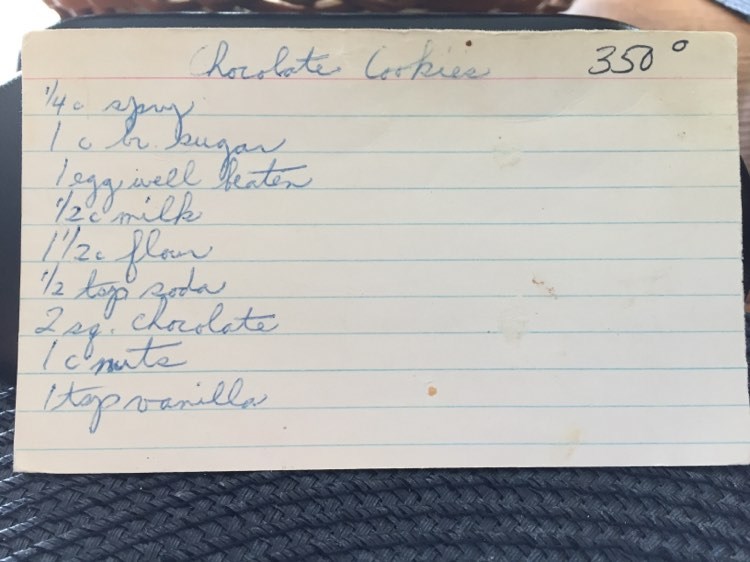 Chocolate Cookies 350°
1/4 c spry
1 c br. sugar
1 egg well beaten
1/2 c milk
1 1/2 c flour
1/2 tsp soda
2 sq. chocolate
1 c nuts
1 tsp vanilla